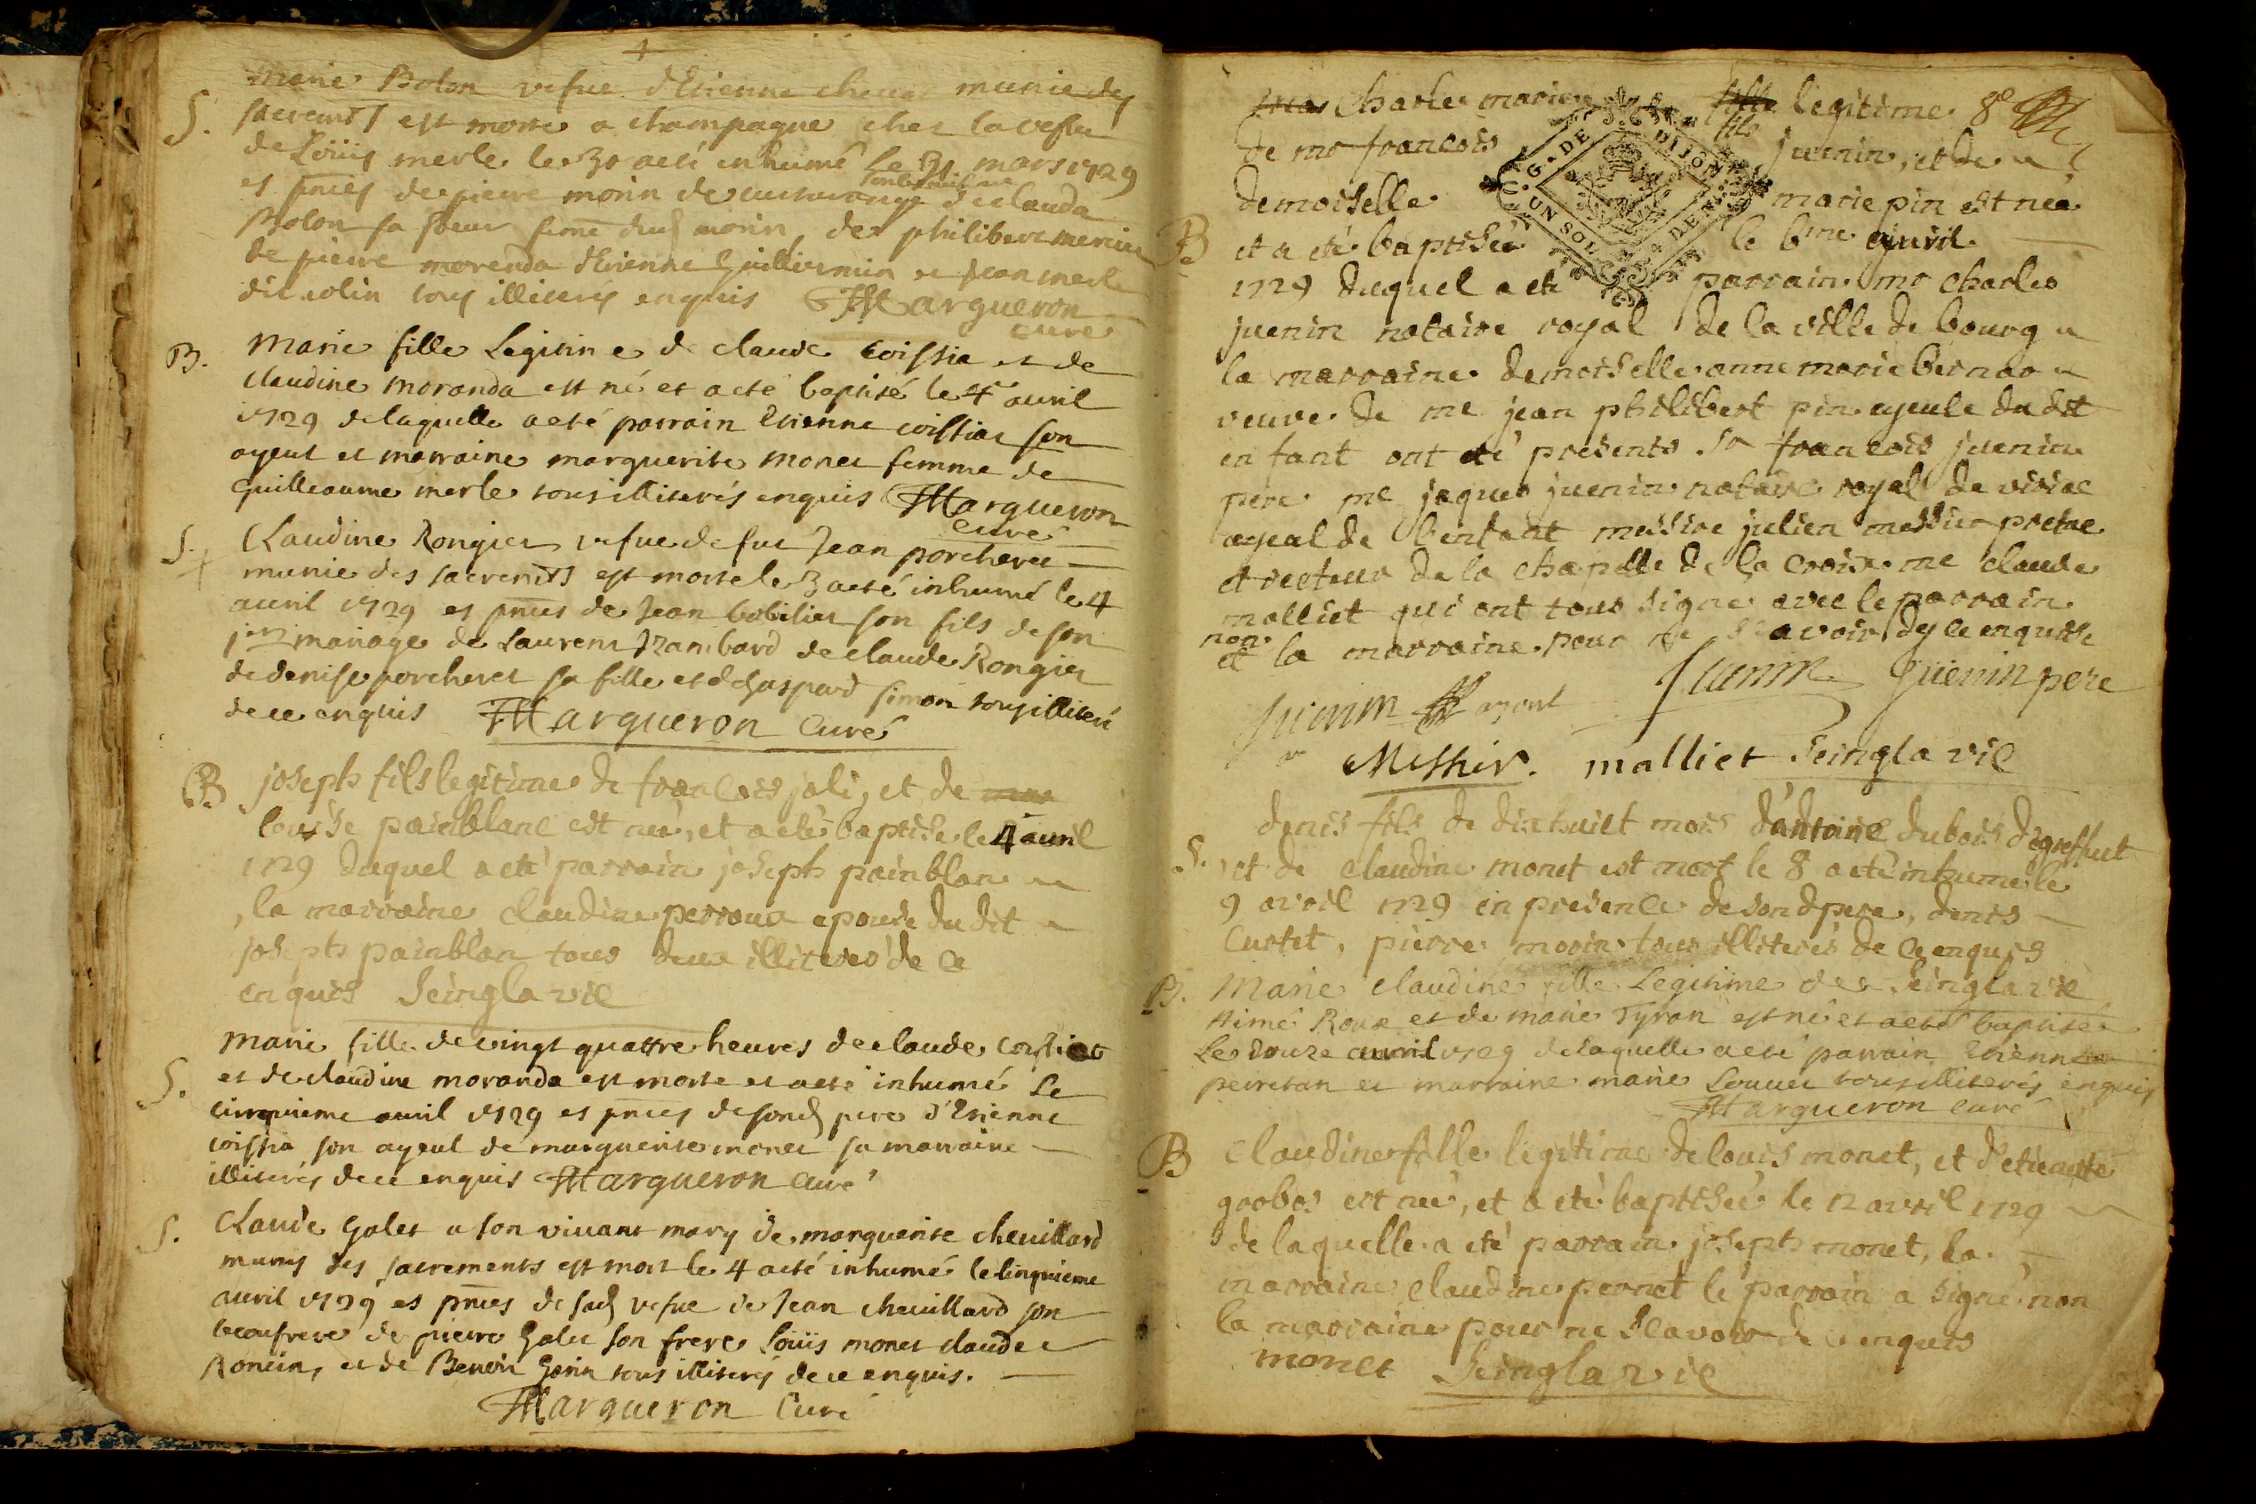 Marie Bolon vefve d'Etienne munie des
S. sacremts est morte a champagne chez la vefve
de Loüis merle le 30 a eté inhumé le 31 mars 1729
es pnces de pierre morin de declauda
Bolon sa soeur feme dud morin, de philibert mercier
de pierre morenda d'Etienne Guilliermin et Jean merle
dit colin tous illiterés enquis Margueron
curé
B. Marie fille Legitime de claude Coissia et de
claudine moranda est né et a eté baptisé le 4e avril
1729 de laquelle a eté parrain Etienne coissiat son
ayeul et marraine marguerite monet femme de
Guilleaume merle tous illiterés enquis Margueron
curé
S. Claudine Rongier vefue de fue Jean porcheret
munie des sacremts est morte le 3 a eté inhumé le 4
avril 1729 es pnces de Jean bobilier son fils de son
1er mariage de Laurent de claude Rongier
de denise porcheret sa fille et de Gaspard simon tous illiteré
de ce enquis Margueron Curé
B joseph fils legitime de francois joli, et de
louise painblanc est neé, et a eté baptise le 4 avril
1729 duquel a eté parrain joseph painblan
, la marraine claudine perroux epouse du dit
joseph painblan tous deux illiteres de ce
enquis Seinglavie
Marie fille de vingt quattre heures de claude Coissiat
S. et de claudine moranda est morte et a eté inhumé Le
cinquieme avril 1729 es pnces de sond pere d'Etienne
coissia son ayeul de marguerite monet sa marraine
illiterés de ce enquis Margueron Curé
S. Claude Galet a son vivant mary de marguerite chevillard
munis des sacrements est mort le 4 a eté inhumé le cinquieme
avril 1729 es pnces de sad vefue de Jean chevillard son
beaufrere de pierre Galet son frere Loüis monet claude
Roncin, et de Benoit Gorin tous illiterés de ce enquis.
Margueron Curé
Charle marie fils legitime 8e
de mr francois juenin, et de
demoiselle marie pin est neé
B et a eté baptiseé le 6me avril
G. DE DIJON UN SOL DE
1729 duquel a eté parrain mr charles
juenin notaire royal de la ville de bourg
la marraine demoiselle anne marie bernar
veuve de me jean philibert pin ayeule du dit
enfant ont eté presents sr francois juenin
pere me jaques juenin notaire royal de
ayeul de l'enfant messire julien messier pretre
et recteur de la chapelle de la croix me claude
malliet qui ont tous signe avec le parrain
non et la marraine pour ne scavoir de ce enquise
Juenin Juenin Guenin pere
Messier. malliet Seinglavie
denis fils de dixhuict mois d'antoine dubois d'egreffut
S. et de claudine monet est mort le 8 a eté inhumé le
9 avril 1729 en presence de sond pere, denis
Curtet, pierre morin tous illiterés de ce enquis
B. Marie claudine fille Legitime de Seinglavie
Aimé Roux et de marie Tyran est né et a eté baptisée
Le Douze avril 1729 de laquelle a eté parrain Etienne
perretan et marraine marie Louvet tous illiterés enquis
Margueron curé
B claudine fille legitime de louis monet, et d'etienette
goobos est neé, et a eté baptiseé le 12 avril 1729
de laquelle a eté parrain joseph monet, la
marraine claudine pernet le parrain a signé non
la marraine pour ne scavoir de ce enquis
monet Seinglavie